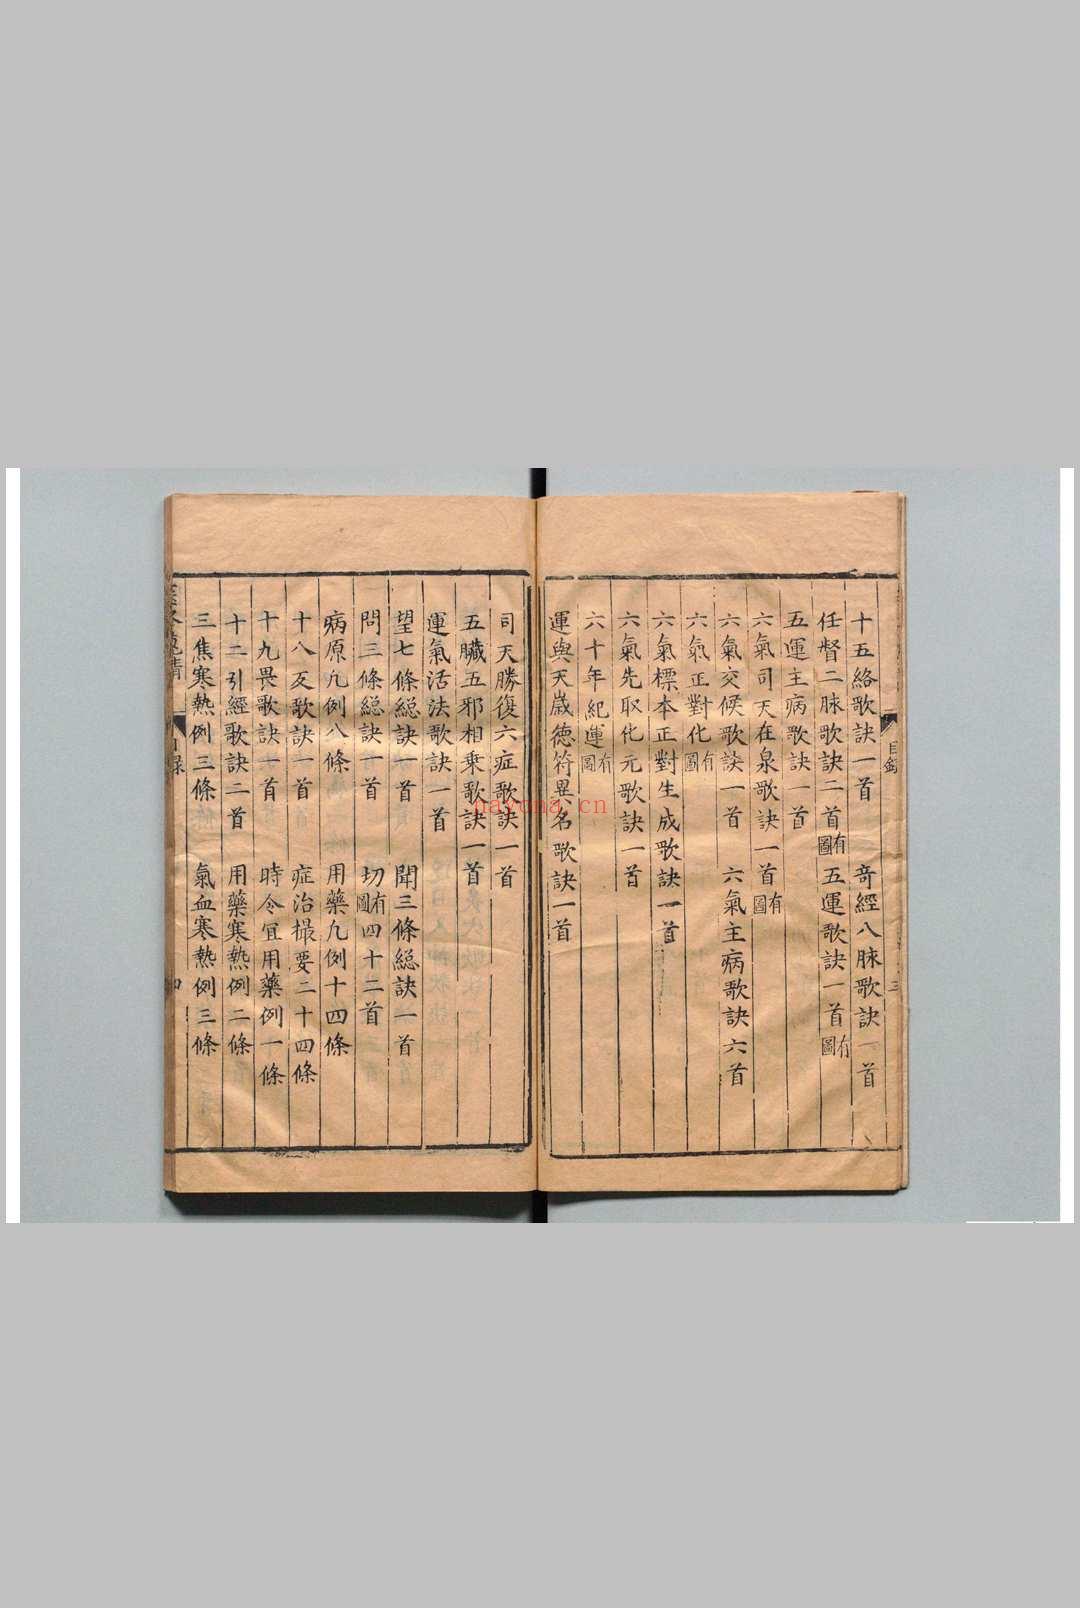 十五絡歌訣一首　奇經八脉歌訣一首
任督二脉歌訣二首有圖五運歌訣一首有圖
五運主病歌訣一首
六氣司天在泉歌訣一首有圖
六氣交候歌訣一首　六氣主病歌訣六首
六氣正對化有圖
六氣標本正對生成歌訣一首
六氣先取化元歌訣一首
六十年紀運有圖
運與天歲德符異名歌訣一首
目錄
三
司天勝復六症歌訣一首
五臟五邪相乗歌訣一首
運氣活法歌訣一首
望七條総訣一首　聞三條総訣一首
問三條総訣一首　切有圖四十二首
病原九例八條　用藥九例十四條
十八反歌訣一首　症治撮要二十四條
十九畏歌訣一首　時令宜用藥例一條
十二引經歌訣二首　用藥寒熱例二條
三焦寒熱例三條　氣血寒熱例三條
nayona.cn